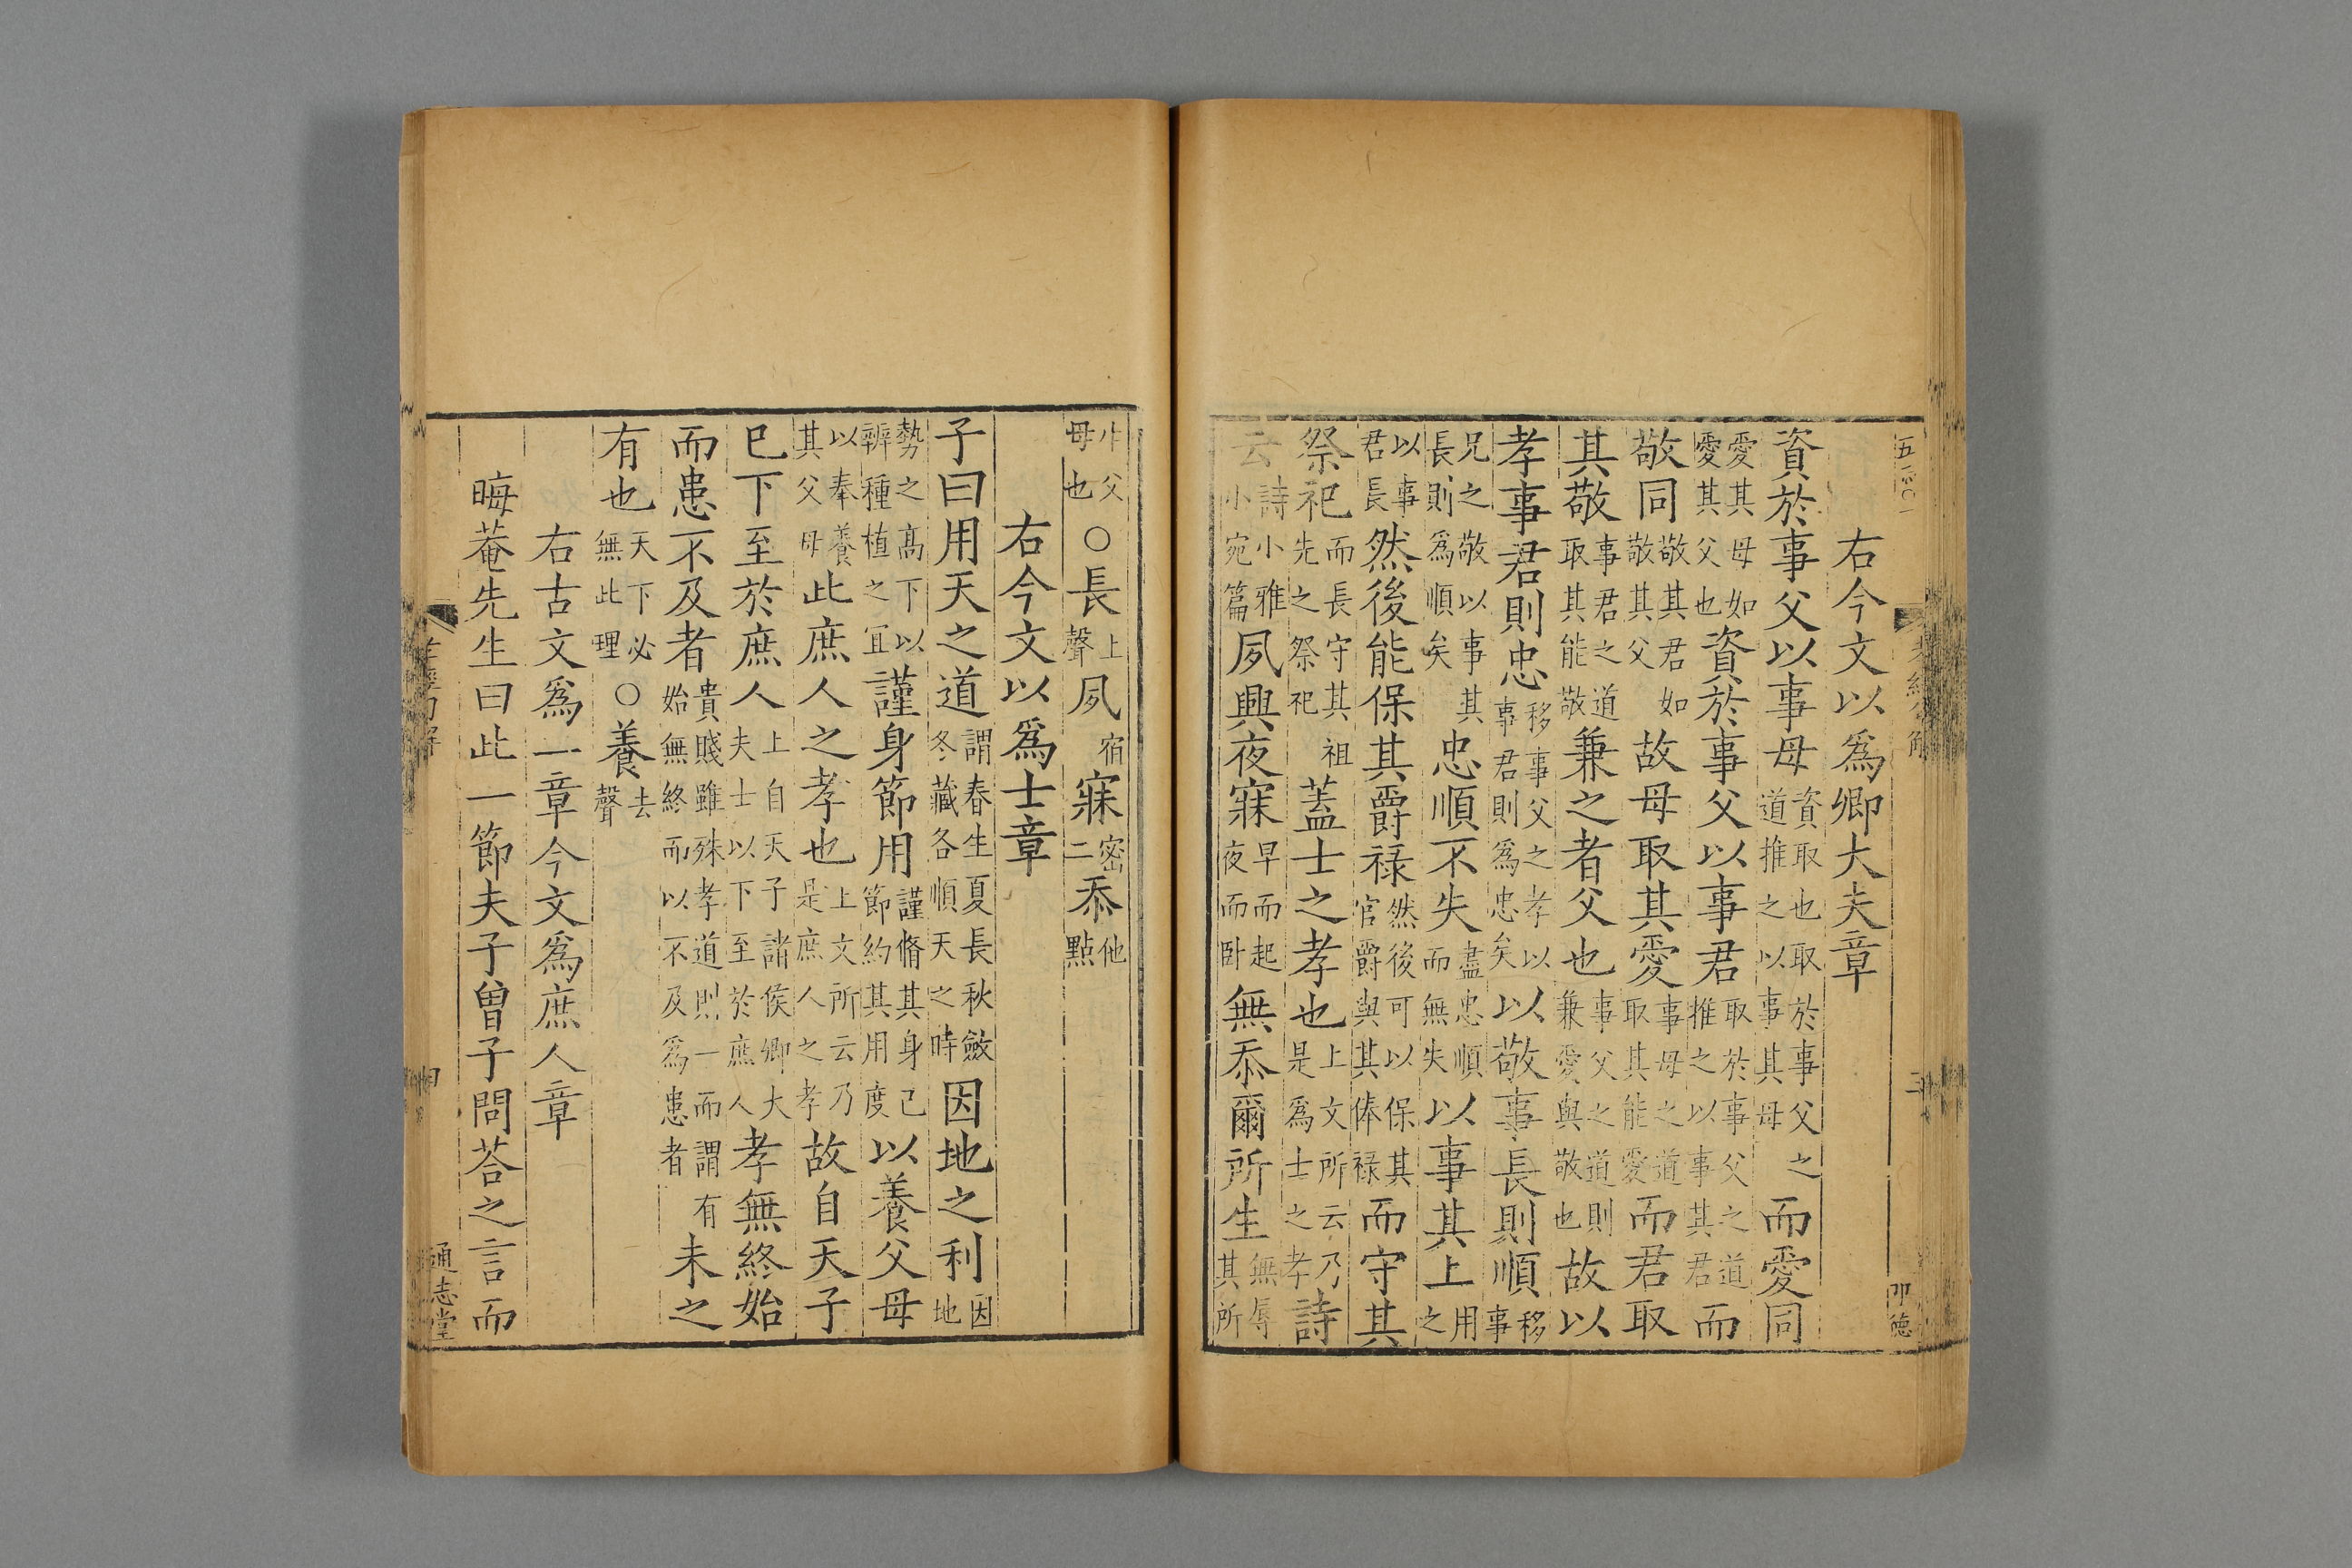 右今文以爲卿大夫章
資於事父以事母資取也取於事父之道推之以事其母而愛同
愛其母如愛其父也資於事父以事君取於事父之道推之以事其君而
敬同敬其君如敬其父故母取其愛事母之道取其能愛而君取
其敬事君之道取其能敬兼之者父也事父之道則兼愛與敬也故以
孝事君則忠移事父之孝以事君則爲忠矣以敬事長則順移事
兄之敬以事其長則爲順矣忠順不失盡忠順而無失以事其上用之
以事君長然後能保其爵祿然後可以保其官爵與其俸祿而守其
祭祀而長守其祖先之祭祀蓋士之孝也上文所云乃是爲士之孝詩
云詩小雅小宛篇夙興夜寐早而起夜而卧無忝爾所生無辱其所
生父母也○長上聲夙宿寐密二忝他點
右今文以爲士章
子曰用天之道謂春生夏長秋斂冬藏各順天之時因地之利因地
勢之高下以辨種植之宜謹身節用謹脩其身己節約其用度以養父母
以奉養其父母此庶人之孝也上文所云乃是庶人之孝故自天子
巳下至於庶人上自天子諸侯卿大夫士以下至於庶人孝無終始
而患不及者貴賤雖殊孝道則一而謂有始無終而以不及爲患者未之
有也天下必無此理○養去聲
右古文爲一章今文爲庶人章
晦菴先生曰此一節夫子曾子問荅之言而
通志堂